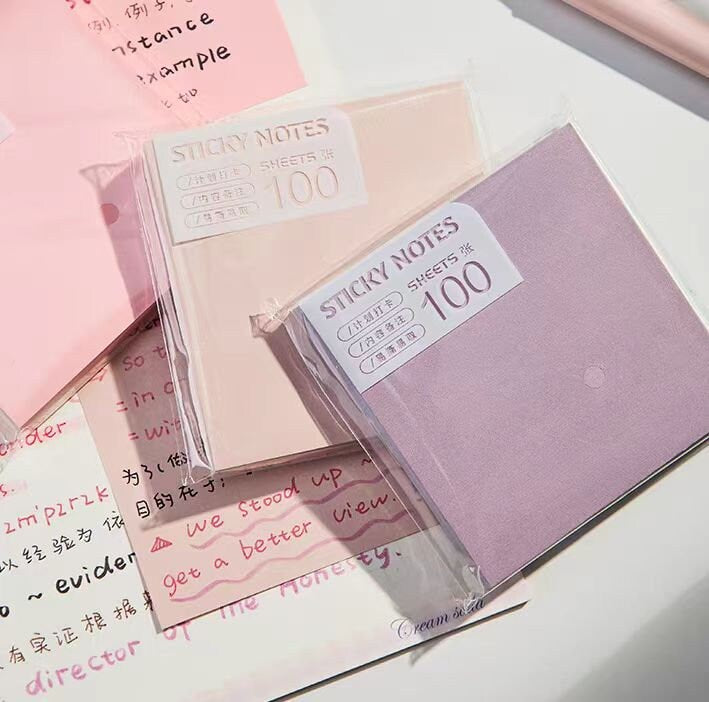 例, 例子,
instance
example
STICKY NOTES
SHEETS 张
100
/计划打卡
/内容备注
/易撕易取
STICKY NOTES
SHEETS 张
100
/计划打卡
/内容备注
/易撕易取
so
= in
=
为了
目的在于;
we stood up ~
get a better view.
以经验为依
~ eviden
有实证根据
director of the Honesty.
Cream soda